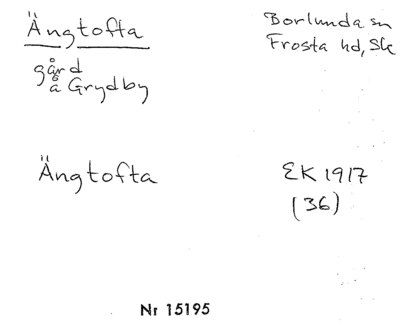 Ängtofta
Borlunda sn
Frosta hd, Sk
gård
å Grydby
Ängtofta
EK 1917
(36)
Nr 15195